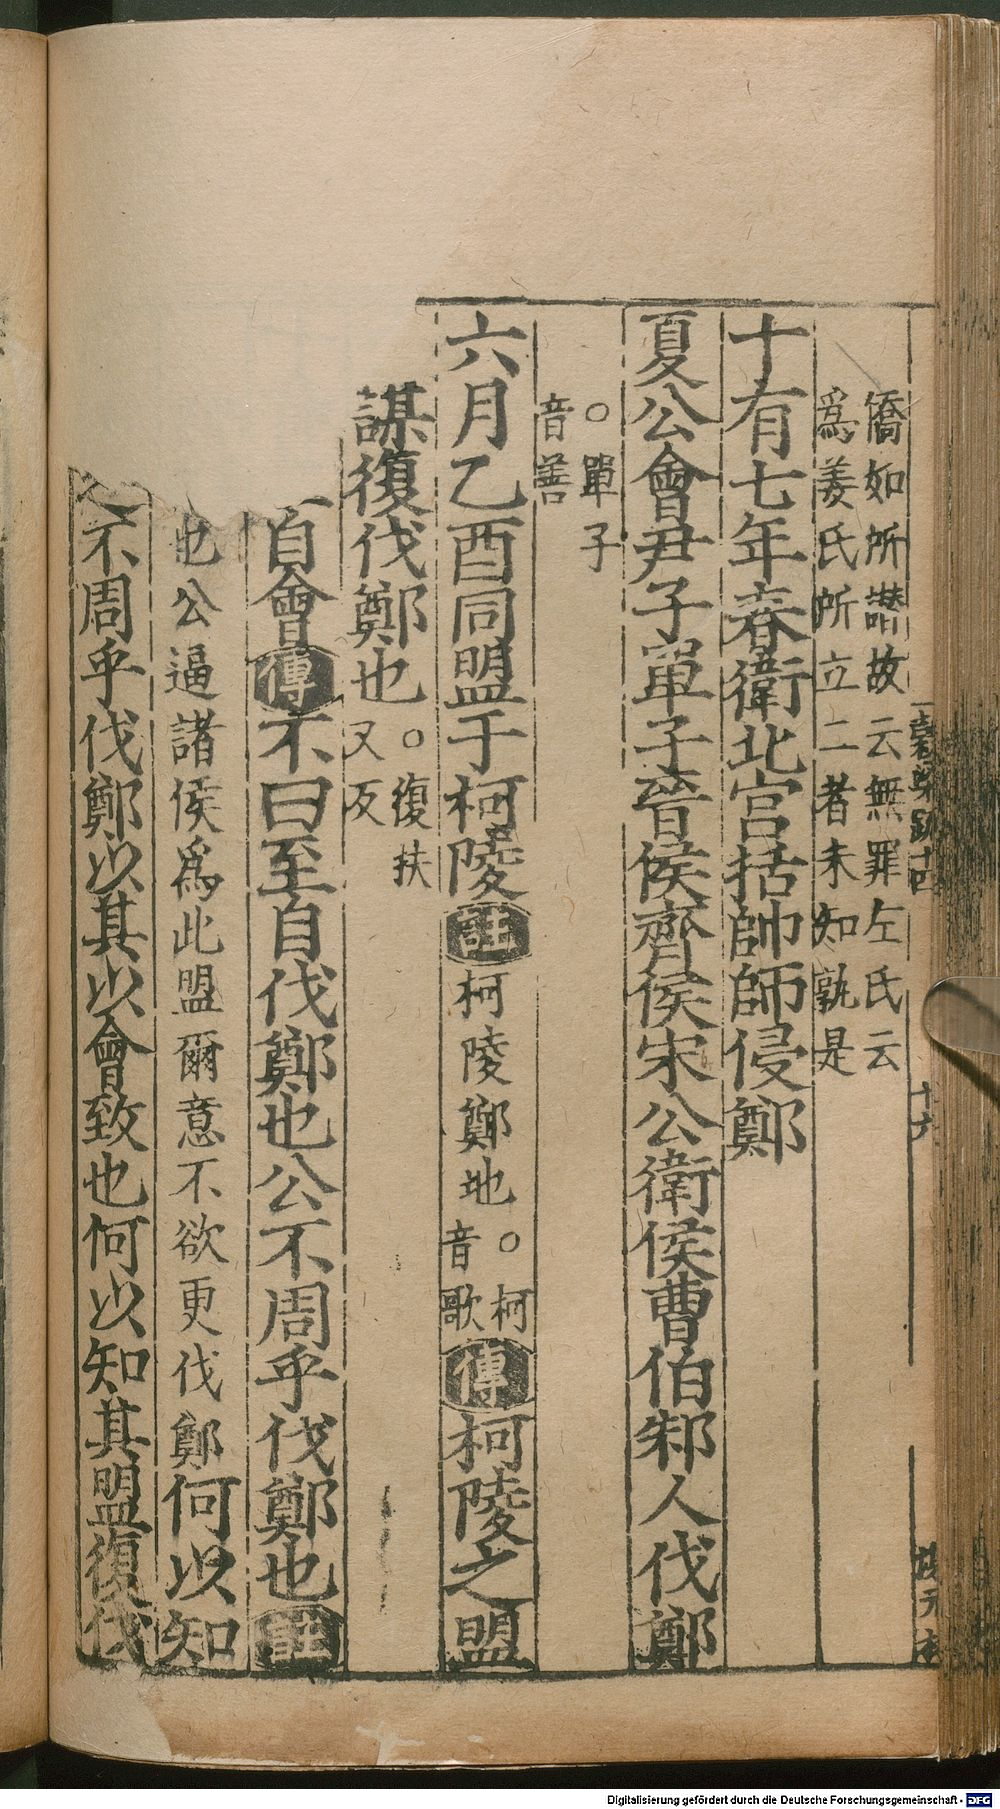 僑如所譖故云無罪左氏云
爲姜氏所立二者未知孰是
十有七年春衛北宫括帥師侵鄭
夏公會尹子單子晉侯齊侯宋公衛侯曹伯邾人伐鄭
○單子
音善
六月乙酉同盟于柯陵註柯陵鄭地○柯音歌傳柯陵之盟
謀復伐鄭也○復扶又反
自會傳不曰至自伐鄭也公不周乎伐鄭也註
也公逼諸侯爲此盟爾意不欲更伐鄭何以知
不周乎伐鄭以其以會致也何以知其盟復伐
十六
Digitalisierung gefördert durch die Deutsche Forschungsgemeinschaft - DFG